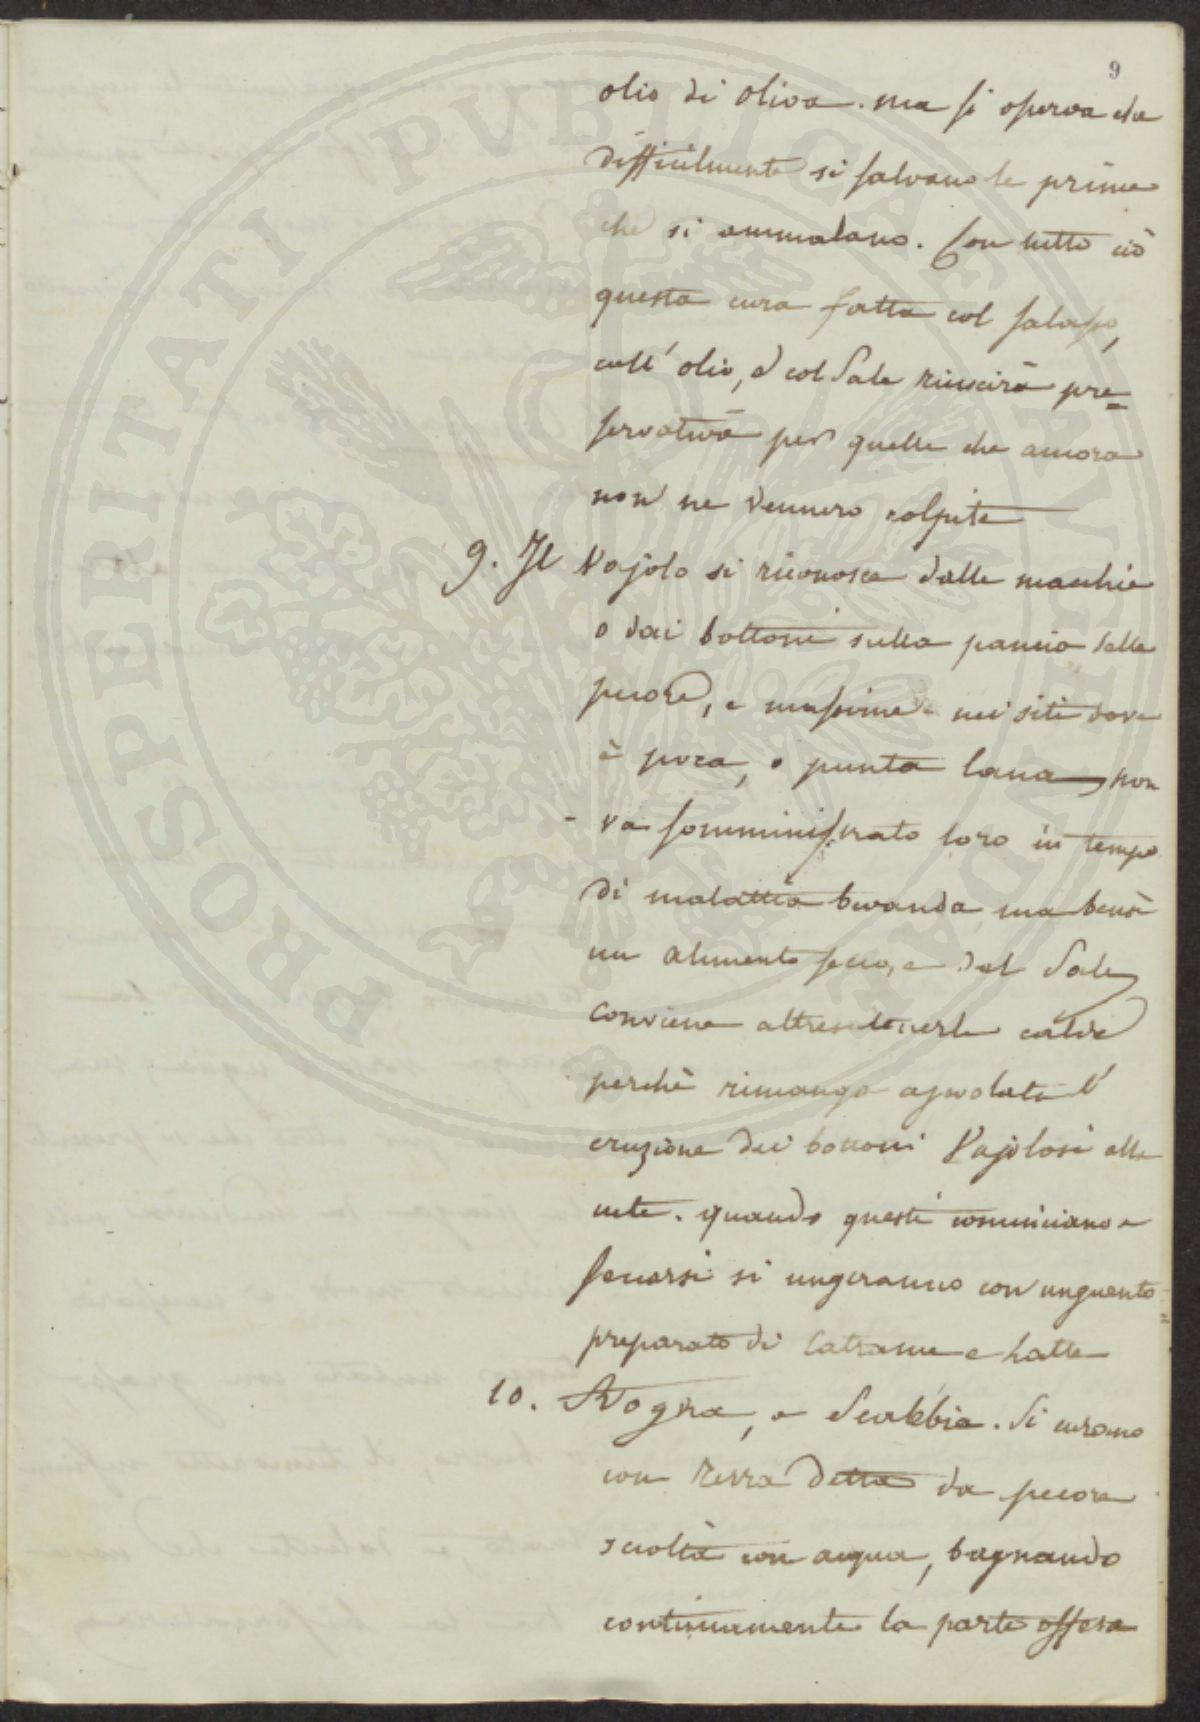 9
olio di oliva. ma si osserva che
difficilmente si salvano le prime
che si ammalano. Con tutto ciò
questa cura fatta col salasso,
coll' olio, e col Sale riuscirà pre=
servativa per quelle che ancora
non ne vennero colpite
9. Il Vajolo si riconosce dalle macchie
o dai bottoni sulla pancia delle
pecore, e massime nei siti dove
è poca, o punta lana, non
va somministrato loro in tempo
di malattia bevanda ma bensì
un alimento secco, e del Sale
conviene altresì tenerle calde
perchè rimanga agevolata l'
eruzione dei bottoni Vajolosi alla
cute. quando questi cominciano a
seccarsi si ungeranno con unguento
preparato di Catrame e Latte
10. Rogna, e Scabbia. Si curano
con terra detta da pecore
sciolta con acqua, bagnando
continuamente la parte offesa
PROSPERITATI PUBLICAE AUGENDAE